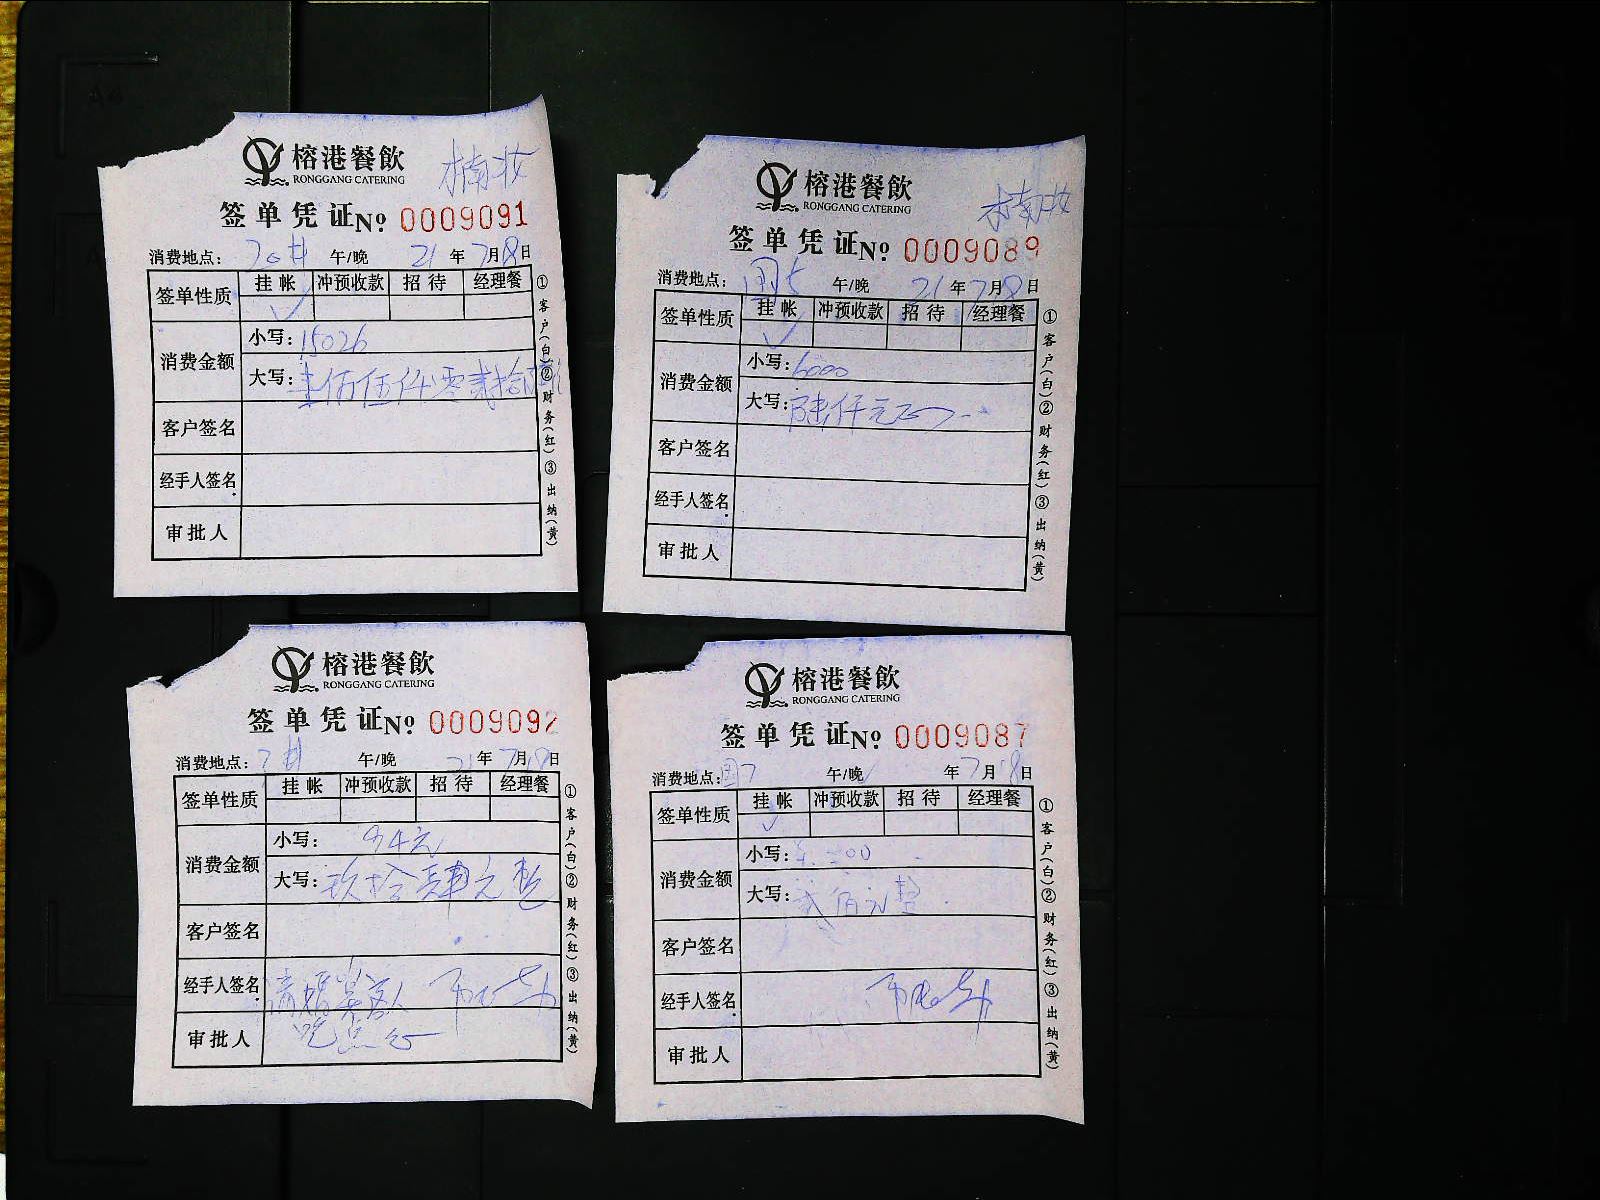 榕港餐飲
RONGGANG CATERING
签单凭证No 0009091
消费地点: 午/晚 21年7月8日
签单性质 挂帐 冲预收款 招待 经理餐
消费金额
小写: 15026
大写: 壹佰伍仟零贰拾
客户签名
经手人签名
审批人
①客户(白)②财务(红)③出纳(黄)
榕港餐飲
RONGGANG CATERING
签单凭证No 0009089
消费地点: 午/晚 21年7月8日
签单性质 挂帐 冲预收款 招待 经理餐
消费金额
小写: 6000
大写: 陆仟元正
客户签名
经手人签名
审批人
①客户(白)②财务(红)③出纳(黄)
榕港餐飲
RONGGANG CATERING
签单凭证No 0009092
消费地点: 午/晚 21年7月18日
签单性质 挂帐 冲预收款 招待 经理餐
消费金额
小写: 94元
大写: 玖拾肆元整
客户签名
经手人签名
审批人
①客户(白)②财务(红)③出纳(黄)
榕港餐飲
RONGGANG CATERING
签单凭证No 0009087
消费地点: 午/晚 年7月18日
签单性质 挂帐 冲预收款 招待 经理餐
消费金额
小写: 200
大写: 贰佰元整
客户签名
经手人签名
审批人
①客户(白)②财务(红)③出纳(黄)